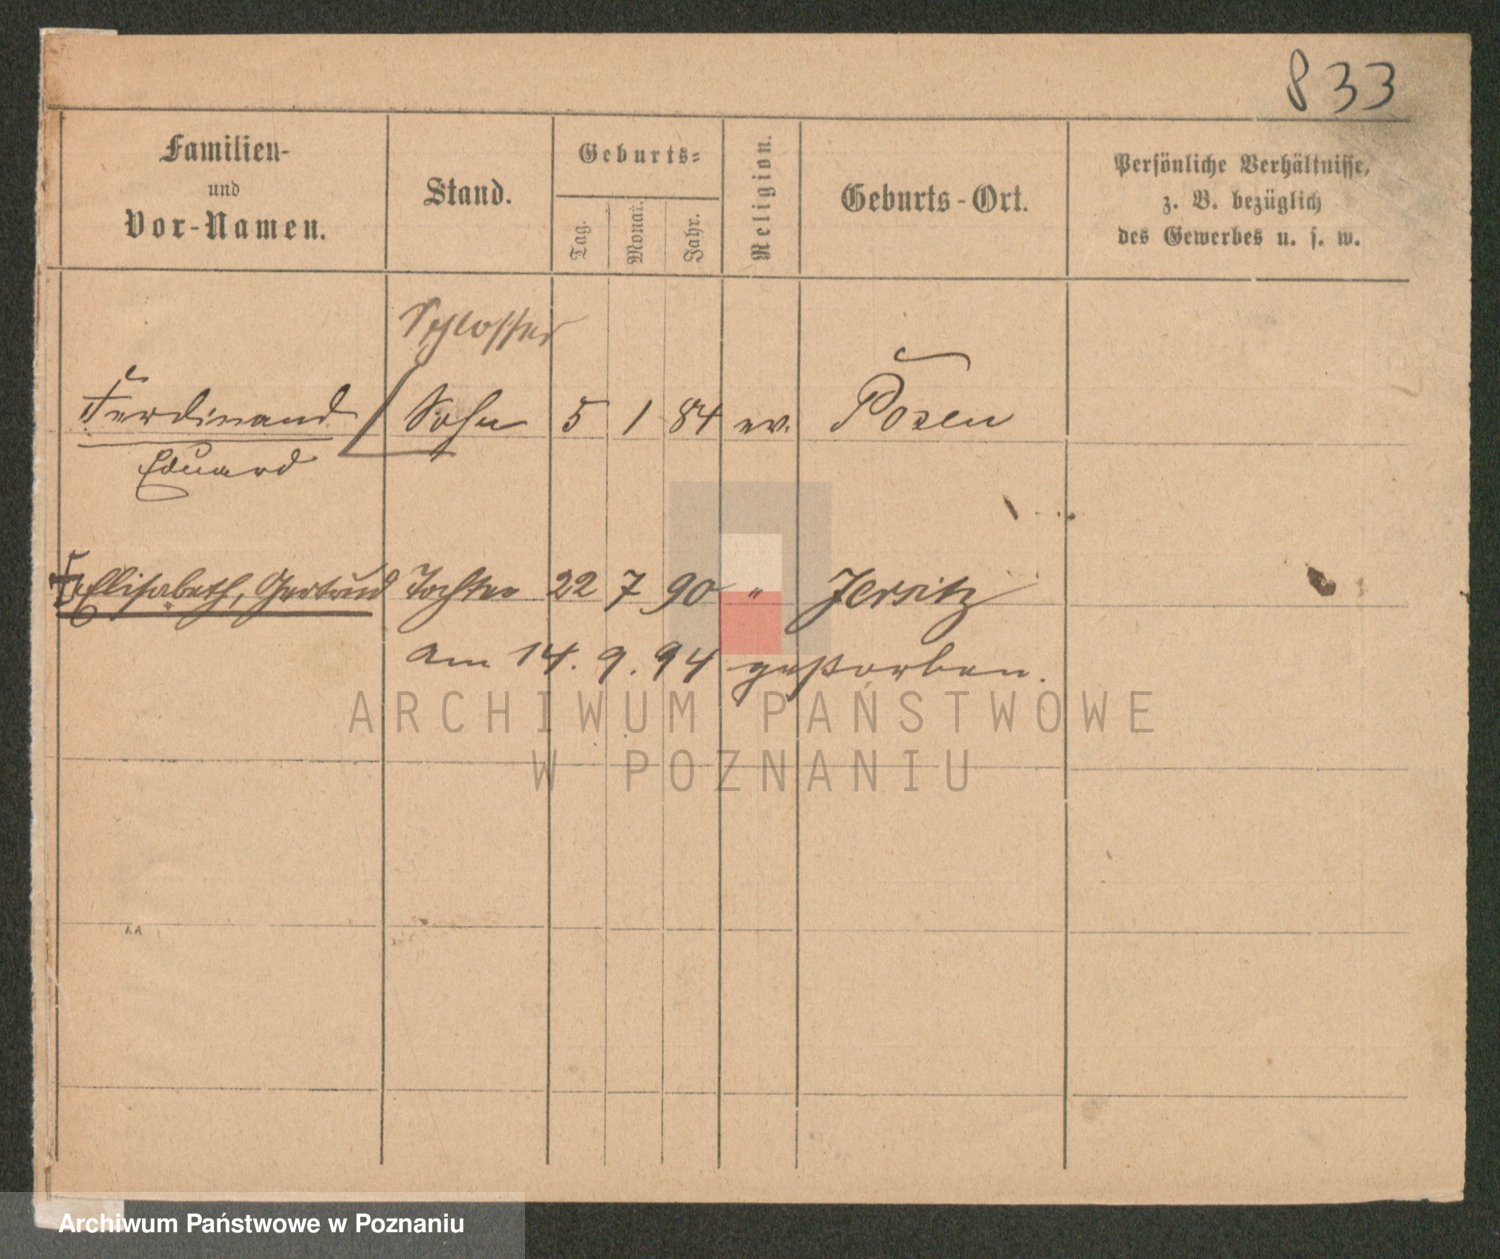 833
Familien-
und
Vor-Namen.
Stand.
Geburts-
Tag.
Monat.
Jahr.
Religion.
Geburts-Ort.
Persönliche Verhältnisse,
z. B. bezüglich
des Gewerbes u. s. w.
Schlosser
Ferdinand Sohn 5 1 84 ev. Posen
Eduard
Elisabeth, Gertrud Tochter 22 7 90 " Jersitz
am 14. 9. 94 gestorben.
ARCHIWUM PAŃSTWOWE
W POZNANIU
Archiwum Państwowe w Poznaniu